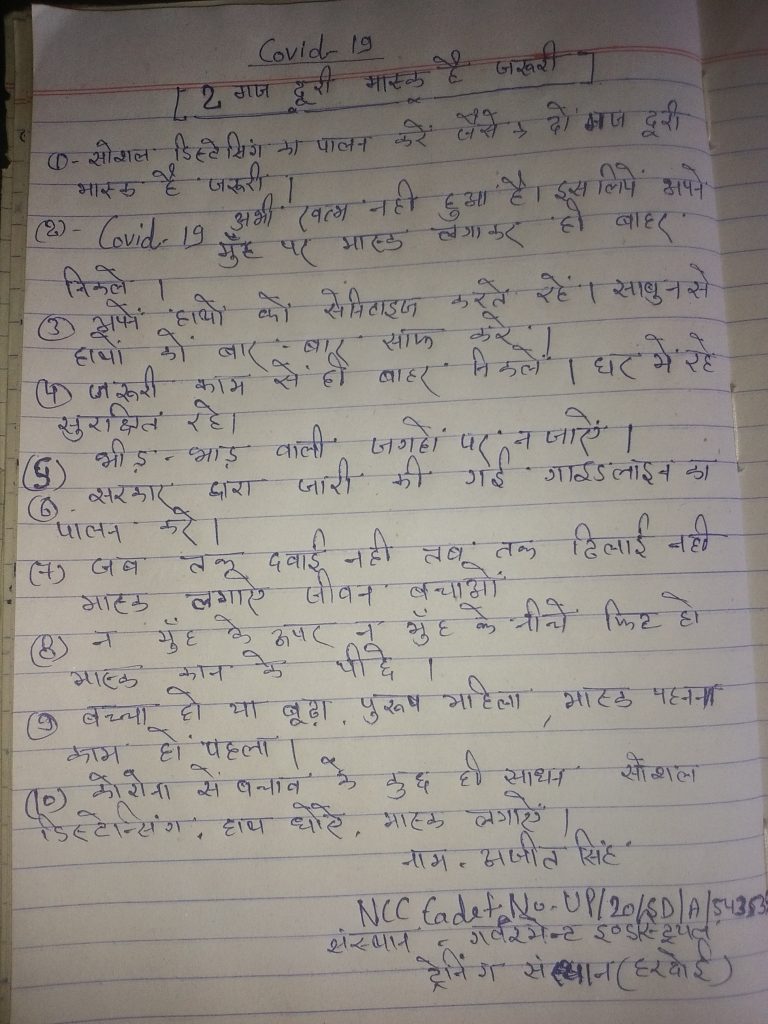 Covid-19
[ 2 गज दूरी मास्क है जरूरी ]
①- सोशल डिस्टेसिंग का पालन करें जैसे दो गज दूरी
मास्क है जरूरी ।
(2)- Covid-19 अभी खत्म नही हुआ है। इसलिये अपने
मुँह पर मास्क लगाकर ही बाहर
निकले ।
③ अपने हाथों को सेनिटाइज करते रहें । साबुन से
हाथों को बार-बार साफ करें ।
(4) जरूरी काम से ही बाहर निकलें । घर में रहे
सुरक्षित रहे।
(5) भीड़-भाड़ वाली जगहों पर न जाएं ।
⑥. सरकार द्वारा जारी की गई गाइडलाइन का
पालन करे ।
(7) जब तक दवाई नही तब तक ढिलाई नही
मास्क लगाऐ जीवन बचाओं
(8) न मुँह के ऊपर न मुँह के नीचे फिट हो
मास्क कान के पीछे ।
⑨ बच्चा हो या बूढ़ा, पुरूष महिला, मास्क पहनना
काम हो पहला ।
(10) कोरोना से बचाव के कुछ ही साधन सोशल
डिस्टेन्सिंग, हाथ धोऐ, मास्क लगाऐं ।
नाम - अजीत सिंह
NCC Cadet No- UP/20/SD/A/
संस्थान - गर्वरमेन्ट इण्डस्ट्रियल
ट्रेनिंग संस्थान (हरदोई)